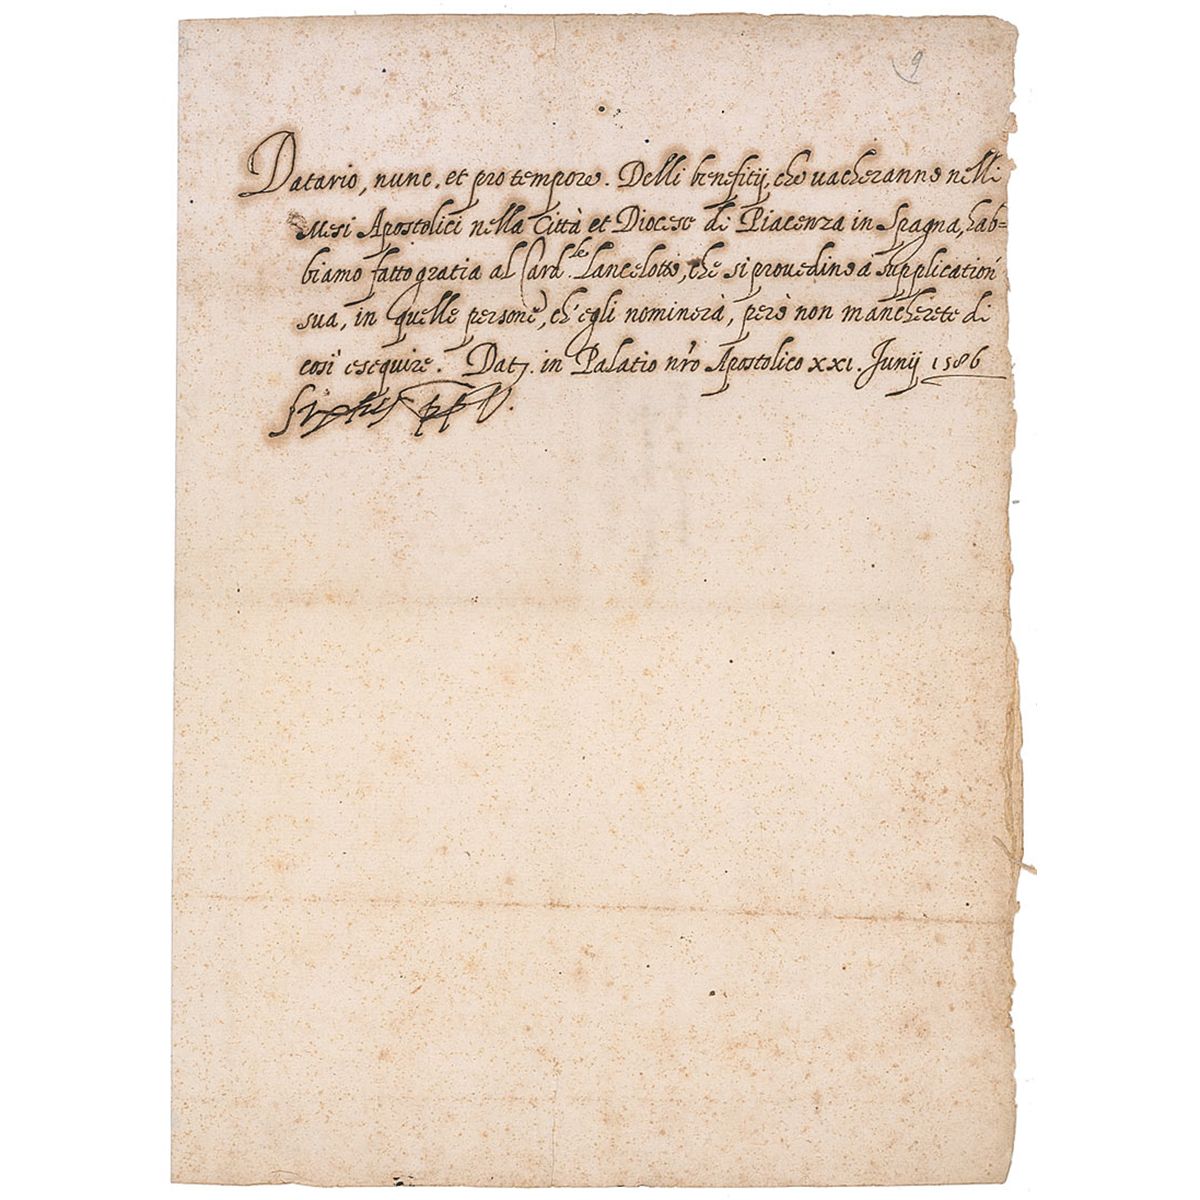 9
Datario, nunc, et pro tempore. Delli benefitij, che vacheranno nelli
Mesi Apostolici nella Città et Diocese di Piacenza in Spagna, hab=
biamo fatto gratia al Card.le Lancelotto, che si provedino a supplication'
sua, in quelle persone, ch'egli nominerà, però non mancherete di
così esequire. Dat. in Palatio nr̃o Apostolico xxi. Junij 1586